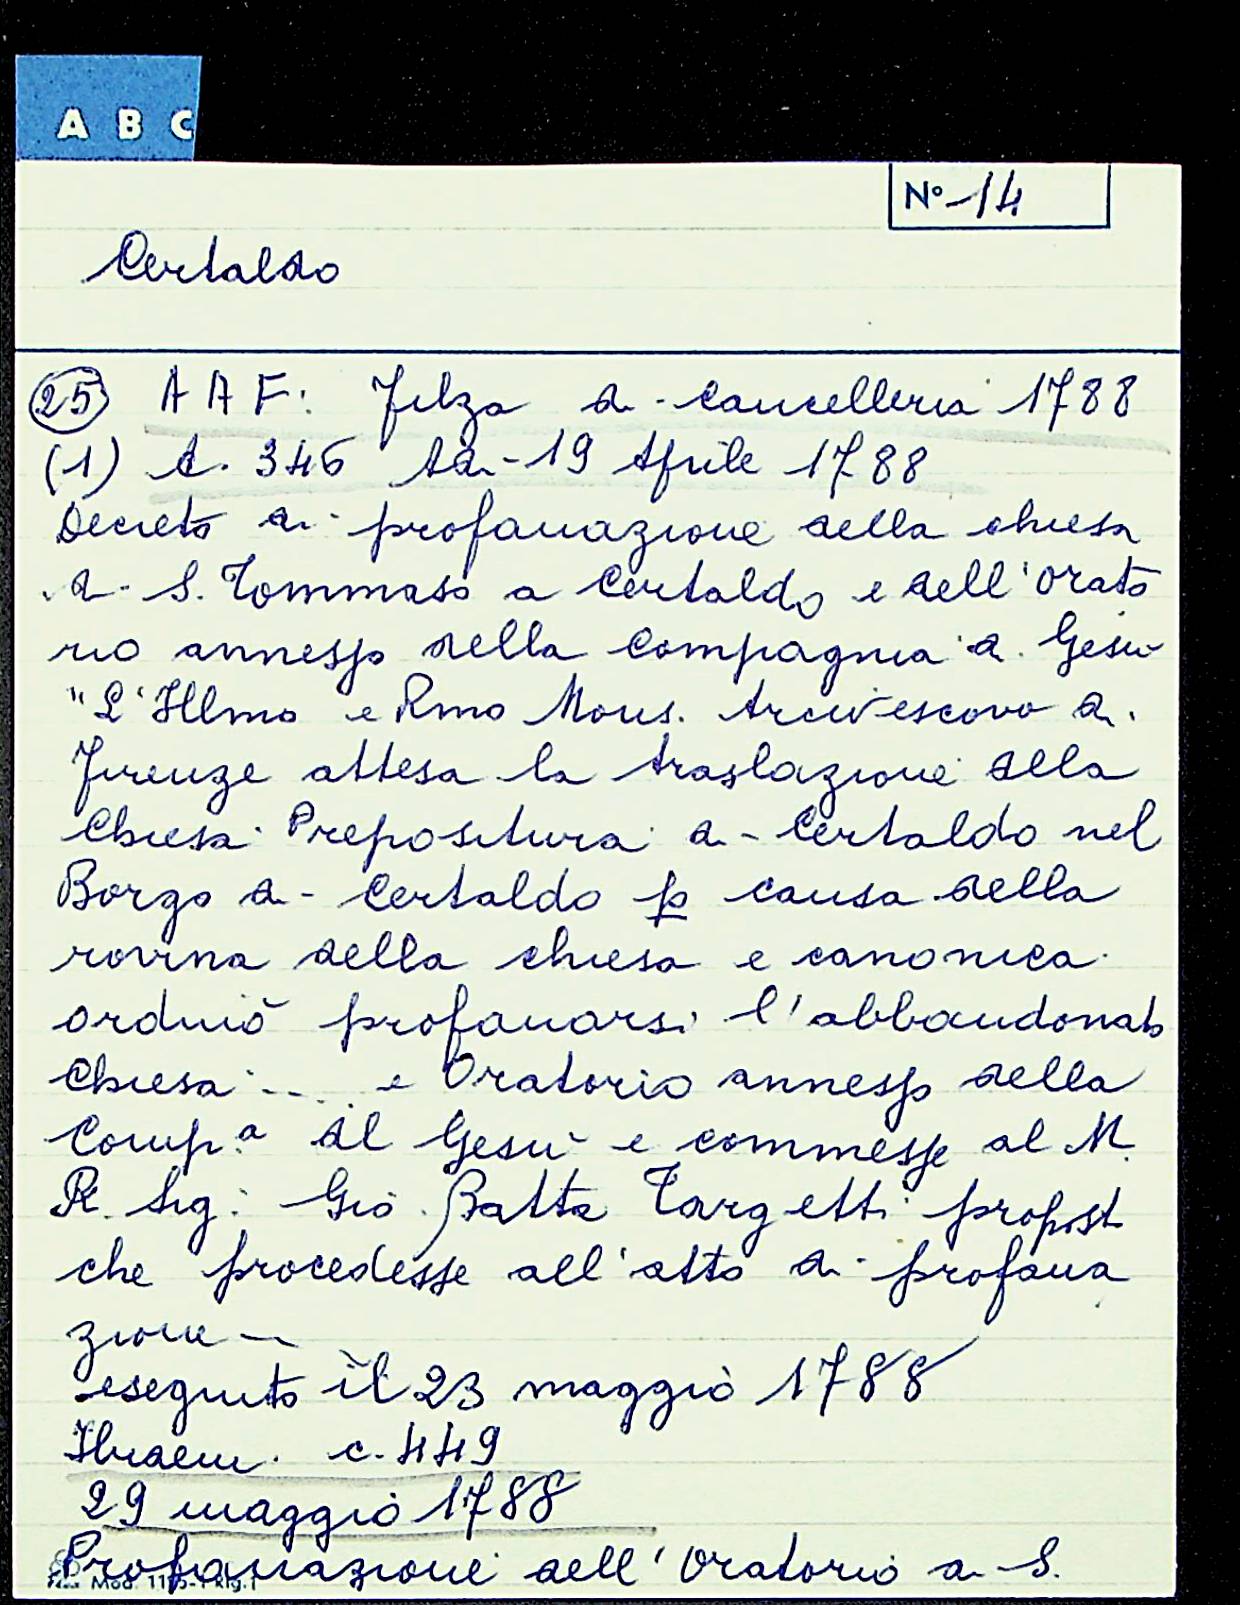 A B C
N° 14
Certaldo
25 A A F: Filza di Cancelleria 1788
(1) c. 346 19 Aprile 1788
Decreto di profanazione della chiesa
di S. Tommaso a Certaldo e dell'orato
rio annesso della Compagnia di Gesù
"L'Illmo e Rmo Mons. Arcivescovo di
Firenze attesa la traslazione della
Chiesa Prepositura di Certaldo nel
Borgo di Certaldo p causa della
rovina della chiesa e canonica
ordinò profanarsi l'abbandonata
Chiesa .... e Oratorio annesso della
Comp.a del Gesù e commesse al M.
R. Sig: Gio Batta Targetti propost
che procedesse all'atto di profana
zione —
eseguito il 23 maggio 1788
Ibidem. c. 449
29 maggio 1788
Profanazione dell'Oratorio di S.